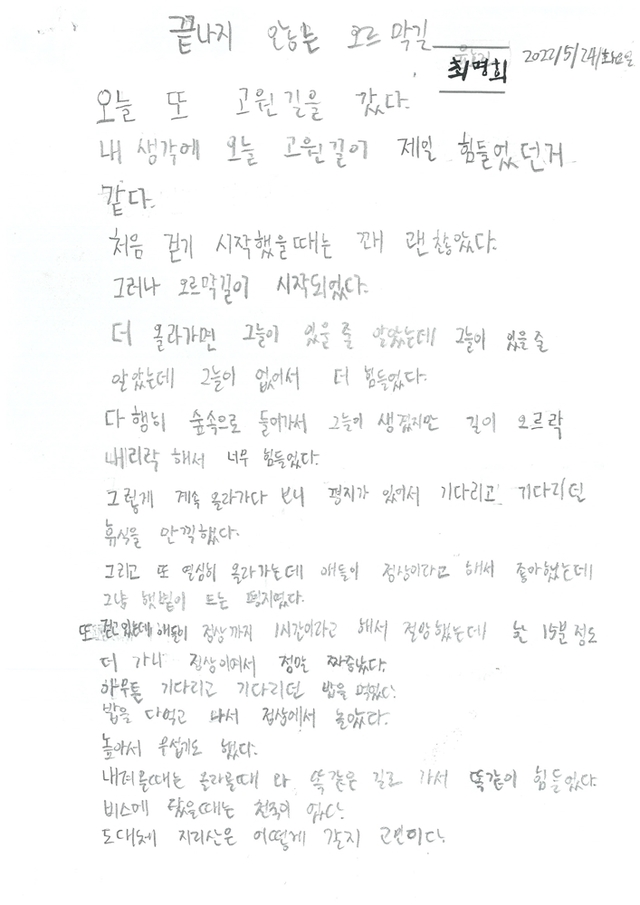 끝나지 않는 오르막길
최명희
2022/5/24/화요일
오늘 또 고원길을 갔다.
내 생각에 오늘 고원길이 제일 힘들었던거
같다.
처음 걷기 시작했을때는 꽤 괜찮았다.
그러나 오르막길이 시작되었다.
더 올라가면 그늘이 있을 줄 알았는데 그늘이 있을 줄
알았는데 그늘이 없어서 더 힘들었다.
다행히 숲속으로 들어가서 그늘이 생겼지만 길이 오르락
내리락 해서 너무 힘들었다.
그렇게 계속 올라가다 보니 평지가 있어서 기다리고 기다리던
휴식을 만끽했다.
그리고 또 열심히 올라가는데 애들이 정상이라고 해서 좋아했는데
그냥 햇빛이 드는 평지였다.
또 걷고있는데 애들이 정상까지 1시간이라고 해서 절망했는데 한 15분 정도
더 가니 정상이여서 정말 짜증났다.
아무튼 기다리고 기다리던 밥을 먹었다.
밥을 다먹고 나서 정상에서 놀았다.
높아서 무섭기도 했다.
내려올때는 올라올때 와 똑같은 길로 가서 똑같이 힘들었다.
버스에 탔을때는 천국이 었다.
도대체 지리산은 어떻게 갈지 고민이다.